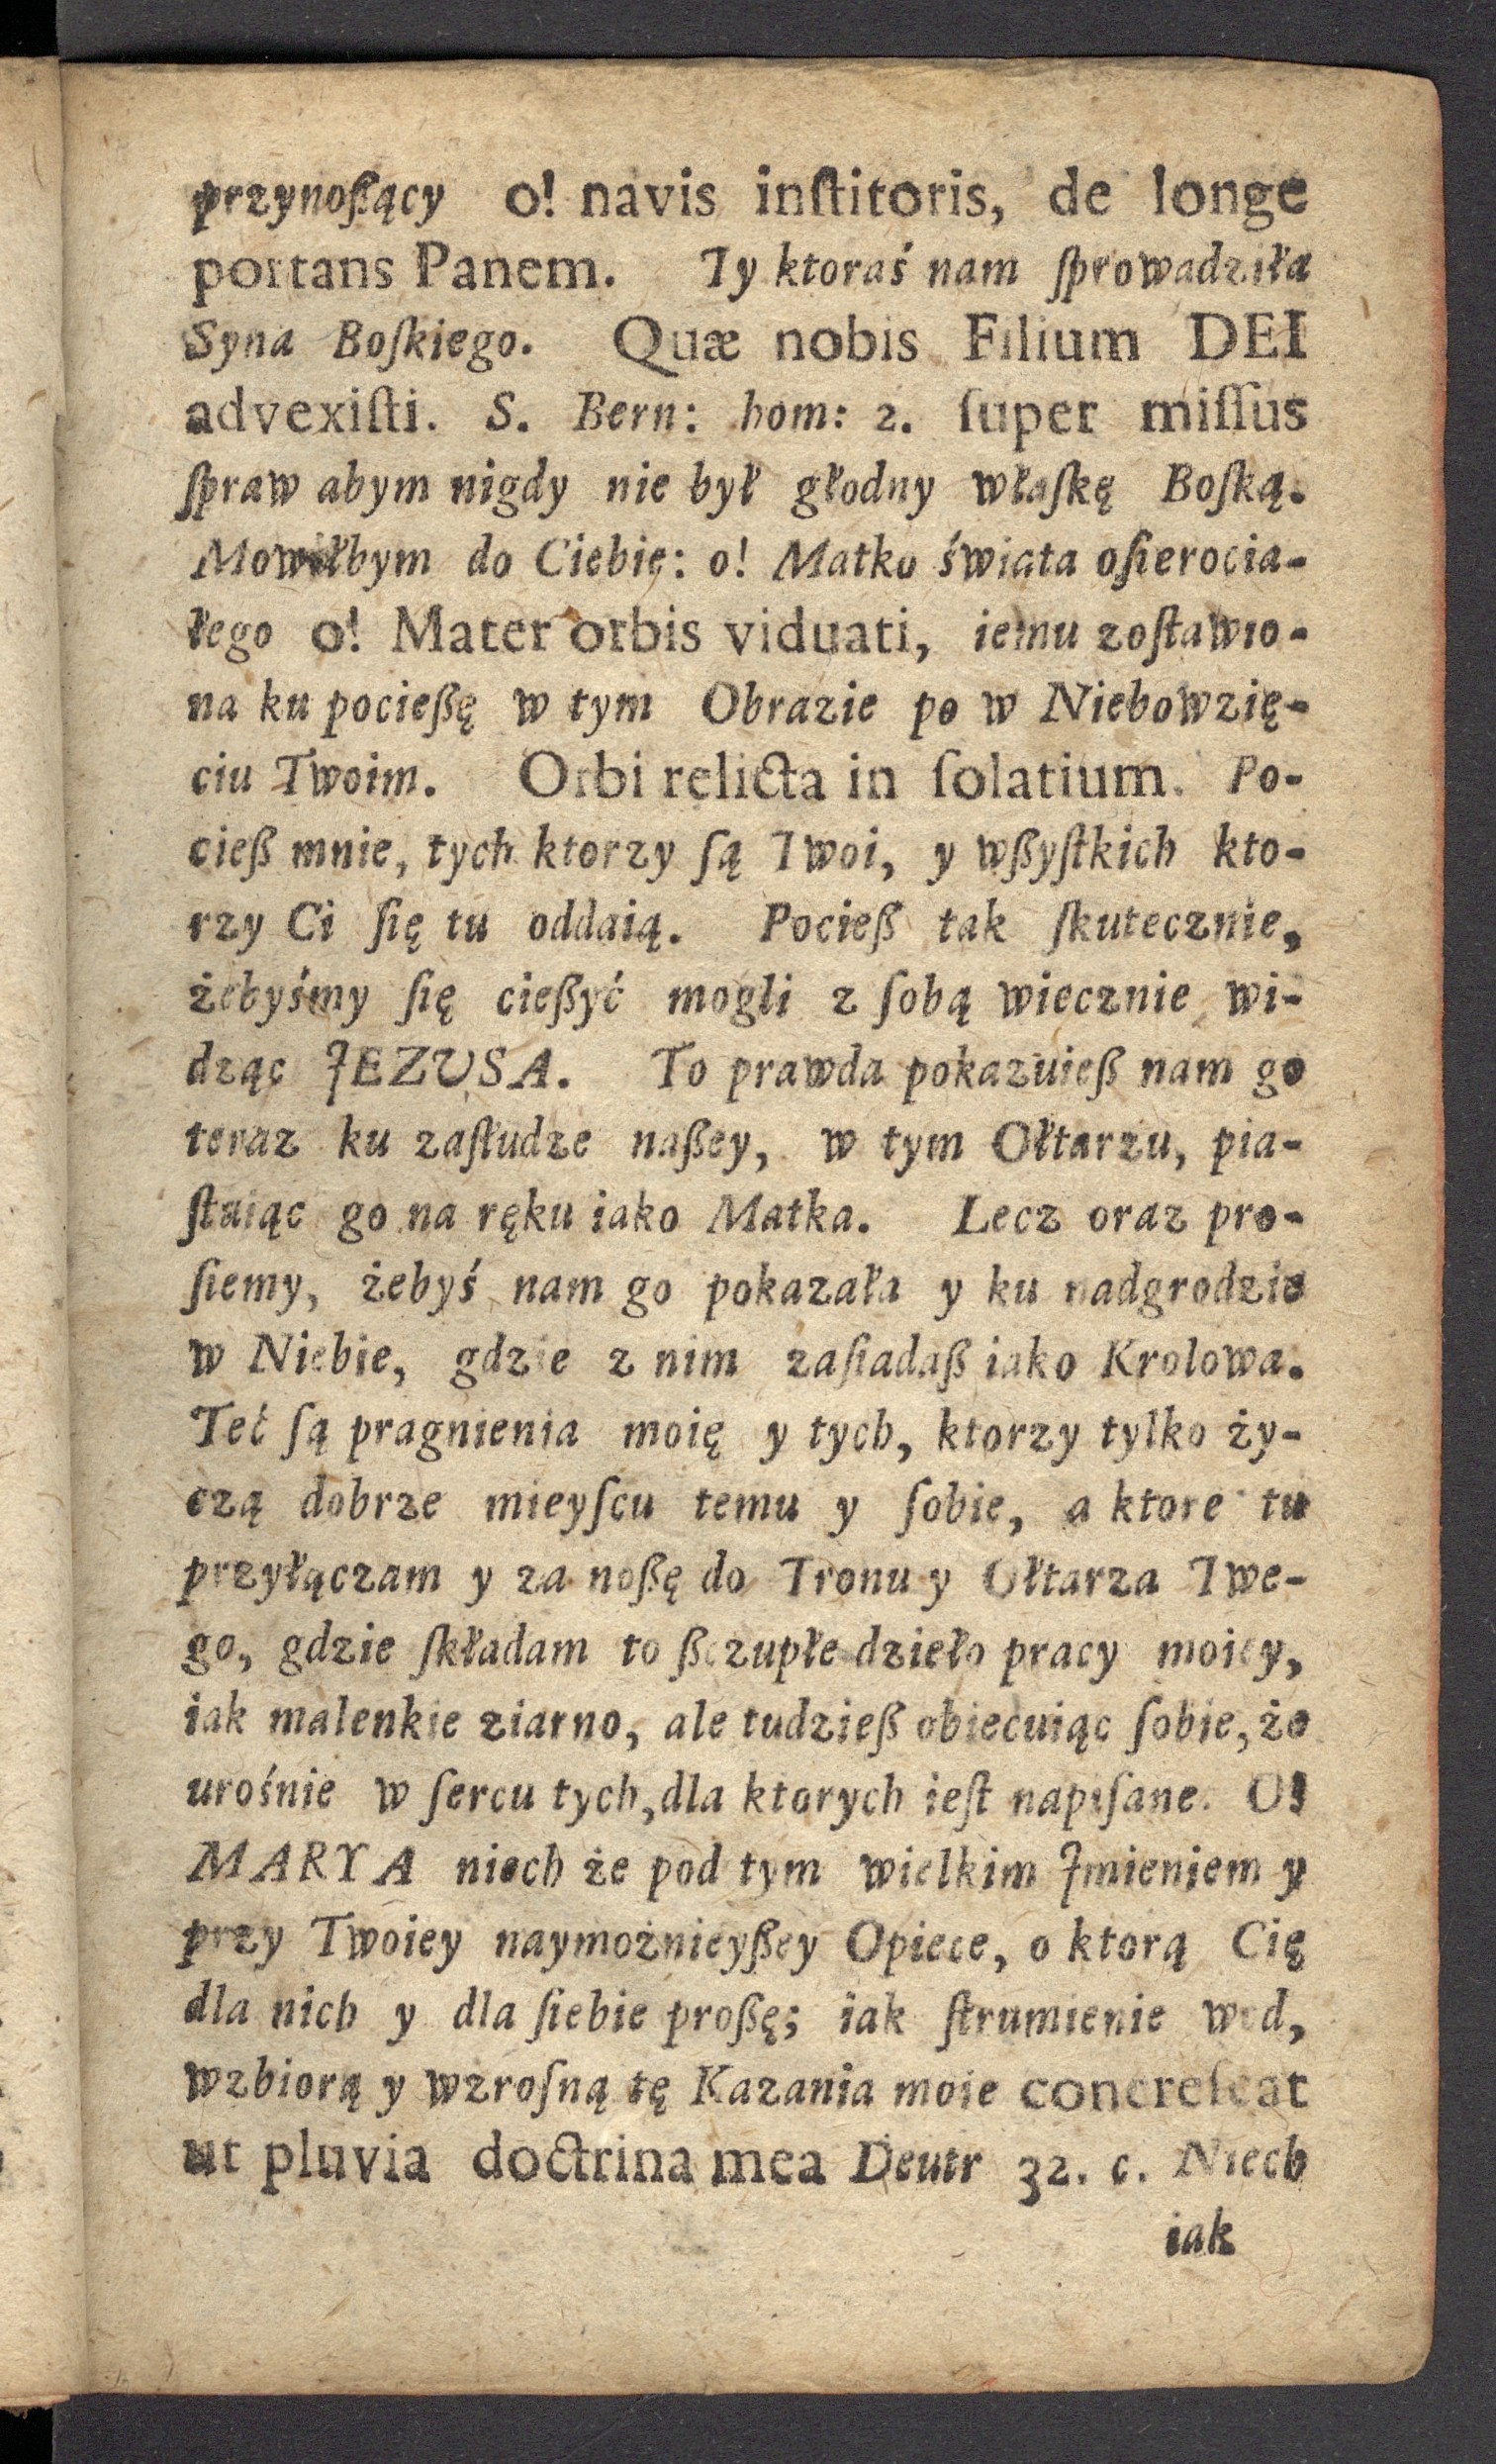 przynoßący o! navis inſtitoris, de longe
portans Panem. Ty ktoraś nam ſprowadziła
Syna Boſkiego. Quæ nobis Filium DEI
advexiſti. S. Bern: hom: 2. ſuper miſſus
ſpraw abym nigdy nie był głodny właſkę Boſką.
Mowiłbym do Ciebie: o! Matko świata oſierocia-
łego o! Mater orbis viduati, iemu zoſtawio-
na ku pocießę w tym Obrazie po w Niebowzię-
ciu Twoim. Orbi relicta in ſolatium. Po-
cieß mnie, tych ktorzy ſą Twoi, y wßyſtkich kto-
rzy Ci ſię tu oddaią. Pocieß tak ſkutecznie,
żebyśmy ſię cießyć mogli z ſobą wiecznie wi-
dząc JEZUSA. To prawda pokazuieß nam go
teraz ku zaſłudze naßey, w tym Ołtarzu, pia-
ſtuiąc go na ręku iako Matka. Lecz oraz pro-
ſiemy, żebyś nam go pokazała y ku nadgrodzie
w Niebie, gdzie z nim zaſiadaß iako Krolowa.
Teć ſą pragnienia moię y tych, ktorzy tylko ży-
czą dobrze mieyſcu temu y ſobie, a ktore tu
przyłączam y za noßę do Tronu y Ołtarza Twe-
go, gdzie ſkładam to ßczupłe dzieło pracy moiey,
iak malenkie ziarno, ale tudzieß obiecuiąc ſobie, że
urośnie w ſercu tych, dla ktorych ieſt napiſane. O!
MARYA niech że pod tym wielkim Jmieniem y
przy Twoiey naymożnieyßey Opiece, o ktorą Cię
dla nich y dla ſiebie proßę; iak ſtrumienie wod,
wzbiorą y wzroſną tę Kazania moie concreſcat
ut pluvia doctrina mea Deutr 32. c. Niech
iak